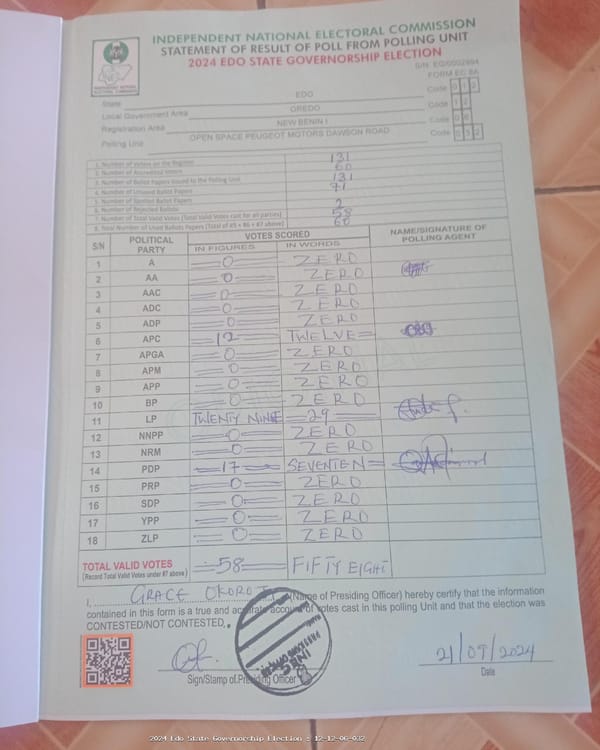 INDEPENDENT NATIONAL ELECTORAL COMMISSION
STATEMENT OF RESULT OF POLL FROM POLLING UNIT
2024 EDO STATE GOVERNORSHIP ELECTION
S/N: EG/0002894
FORM EC 8A
State EDO Code 0 1 2
Local Government Area OREDO Code 1 2
Registration Area NEW BENIN I Code 0 6
Polling Unit OPEN SPACE PEUGEOT MOTORS DAWSON ROAD Code 0 3 2
1. Number of Voters on the Register 131
2. Number of Accredited Voters 60
3. Number of Ballot Papers Issued to the Polling Unit 131
4. Number of Unused Ballot Papers 71
5. Number of Spoiled Ballot Papers
6. Number of Rejected Ballots 2
7. Number of Total Valid Votes (Total Valid Votes cast for all parties) 58
8. Total Number of Used Ballot Papers (Total of #5 + #6 + #7 above) 60
S/N POLITICAL PARTY VOTES SCORED NAME/SIGNATURE OF POLLING AGENT
IN FIGURES IN WORDS
1 A 0 ZERO
2 AA 0 ZERO
3 AAC 0 ZERO
4 ADC 0 ZERO
5 ADP 0 ZERO
6 APC 12 TWELVE
7 APGA 0 ZERO
8 APM 0 ZERO
9 APP 0 ZERO
10 BP 0 ZERO
11 LP TWENTY NINE 29
12 NNPP 0 ZERO
13 NRM 0 ZERO
14 PDP 17 SEVENTEN
15 PRP 0 ZERO
16 SDP 0 ZERO
17 YPP 0 ZERO
18 ZLP 0 ZERO
TOTAL VALID VOTES 58 FIFTY EIGHT
(Record Total Valid Votes under #7 above)
I, GRACE OKORO (Name of Presiding Officer) hereby certify that the information
contained in this form is a true and accurate account of votes cast in this polling Unit and that the election was
CONTESTED/NOT CONTESTED.
21/09/2024
Sign/Stamp of Presiding Officer Date
INEC
2024 Edo State Governorship Election : 12-12-06-032